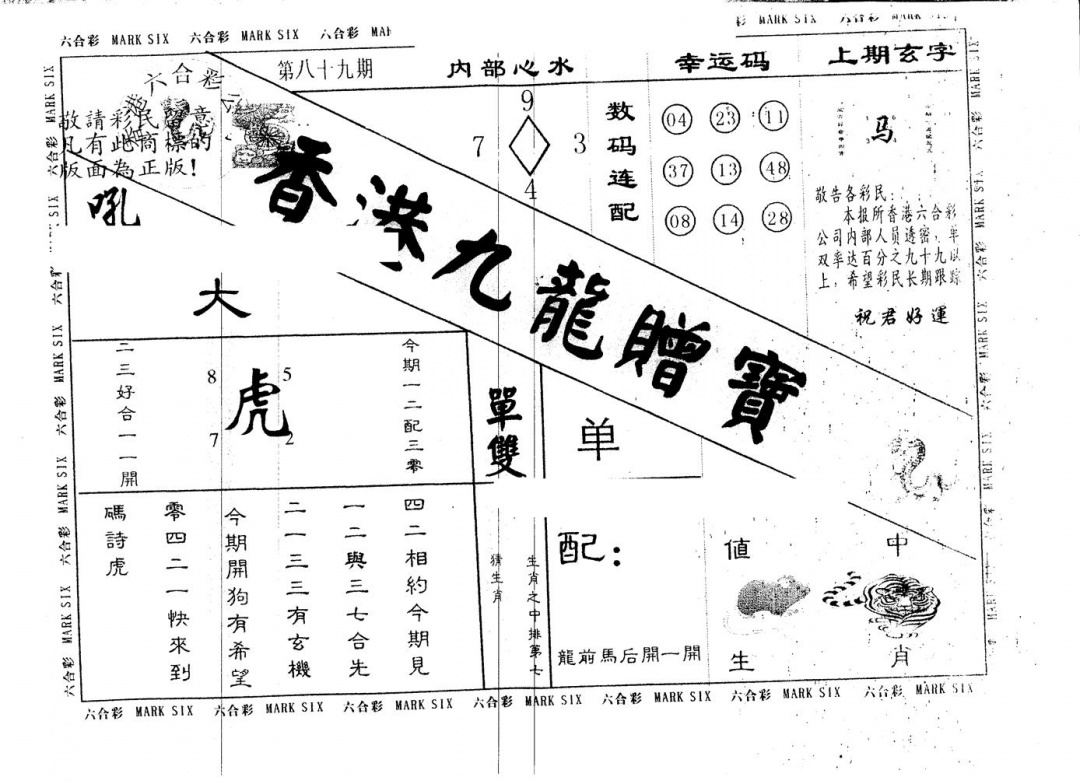 六合彩 MARK SIX 六合彩 MARK SIX 六合彩
MARK SIX
六合彩
第八十九期
内部心水
幸运码
上期玄字
敬請彩民留意
凡有此商標的
版面為正版!
吼
大
香港九龍贈寶
9
7
3
4
数码连配
04 23 11
37 13 48
08 14 28
马
敬告各彩民:
本报所香港六合彩
公司内部人员透密,单
双率达百分之九十九以
上,希望彩民长期跟踪
祝君好運
二三好合一一開
8
5
虎
7
2
今期一二配三零
單雙
单
四二相約今期見
一二與三七合先
二一三三有玄機
今期開狗有希望
零四二一快來到
碼詩虎
猜生肖
生肖之中排第七
配:
龍前馬后開一開
値
中
生
肖
六合彩 MARK SIX 六合彩 MARK SIX 六合彩 MARK SIX 六合彩 MARK SIX 六合彩 MARK SIX 六合彩 MARK SIX 六合彩 MARK SIX
六合彩 MARK SIX 六合彩 MARK SIX 六合彩 MARK SIX